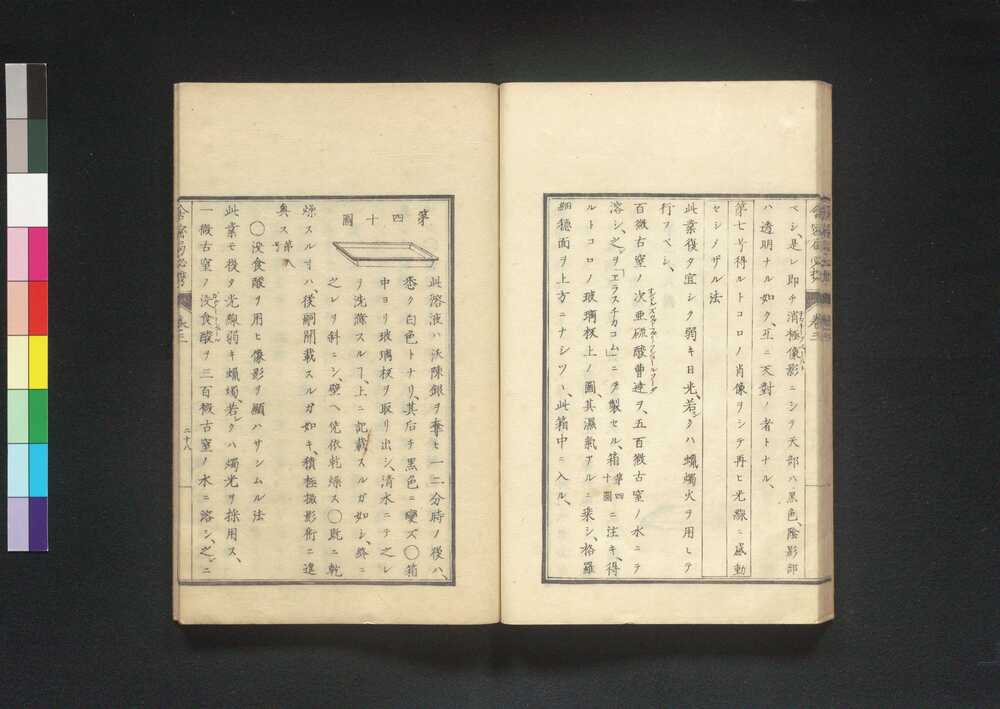 ベシ、是レ即チ消極像影ニシテ天部ハ黒色、陰影部
ハ透明ナル如ク、互ニ天對ノ者トナル、
第七号得ルトコロノ肖像ヲシテ再ヒ光線ニ感動
セシメザル法
此業復タ宜シク弱キ日光、若シクハ蠟燭火ヲ用ヒテ
行フベシ、
百微古窒ノ次亜硫酸曹達ヲ、五百微古窒ノ水ニテ
溶シ、之ヲ「エラスチカコム」ニテ製セル、箱第四十圖ニ注キ、得
ルトコロノ玻璃板上ノ圖、其濕氣アルニ乗シ、格羅
細穏面ヲ上方ニナシツヽ、此箱中ニ入ル、
第四十圖
此溶液ハ沃陳銀ヲ奪ヒ一二分時ノ後ハ、
悉ク白色トナリ、其后チ黒色ニ變ズ〇箱
中ヨリ玻璃板ヲ取リ出シ、清水ニテ之レ
ヲ洗滌スルヿ、上ニ記載スルガ如シ、終ニ
之レヲ斜ニシ、壁ヘ凭依乾燥ス〇既ニ乾
燥スル寸ハ、後嗣開載スルガ如キ、積極撮影術ニ進
奥ス第八号
〇没食酸ヲ用ヒ像影ヲ顯ハサシムル法
此業モ復タ光線弱キ蠟燭、若シクハ燭光ヲ採用ス、
一微古窒ノ没食酸ヲ三百微古窒ノ水ニ溶シ、之ニ
卷三
二十八